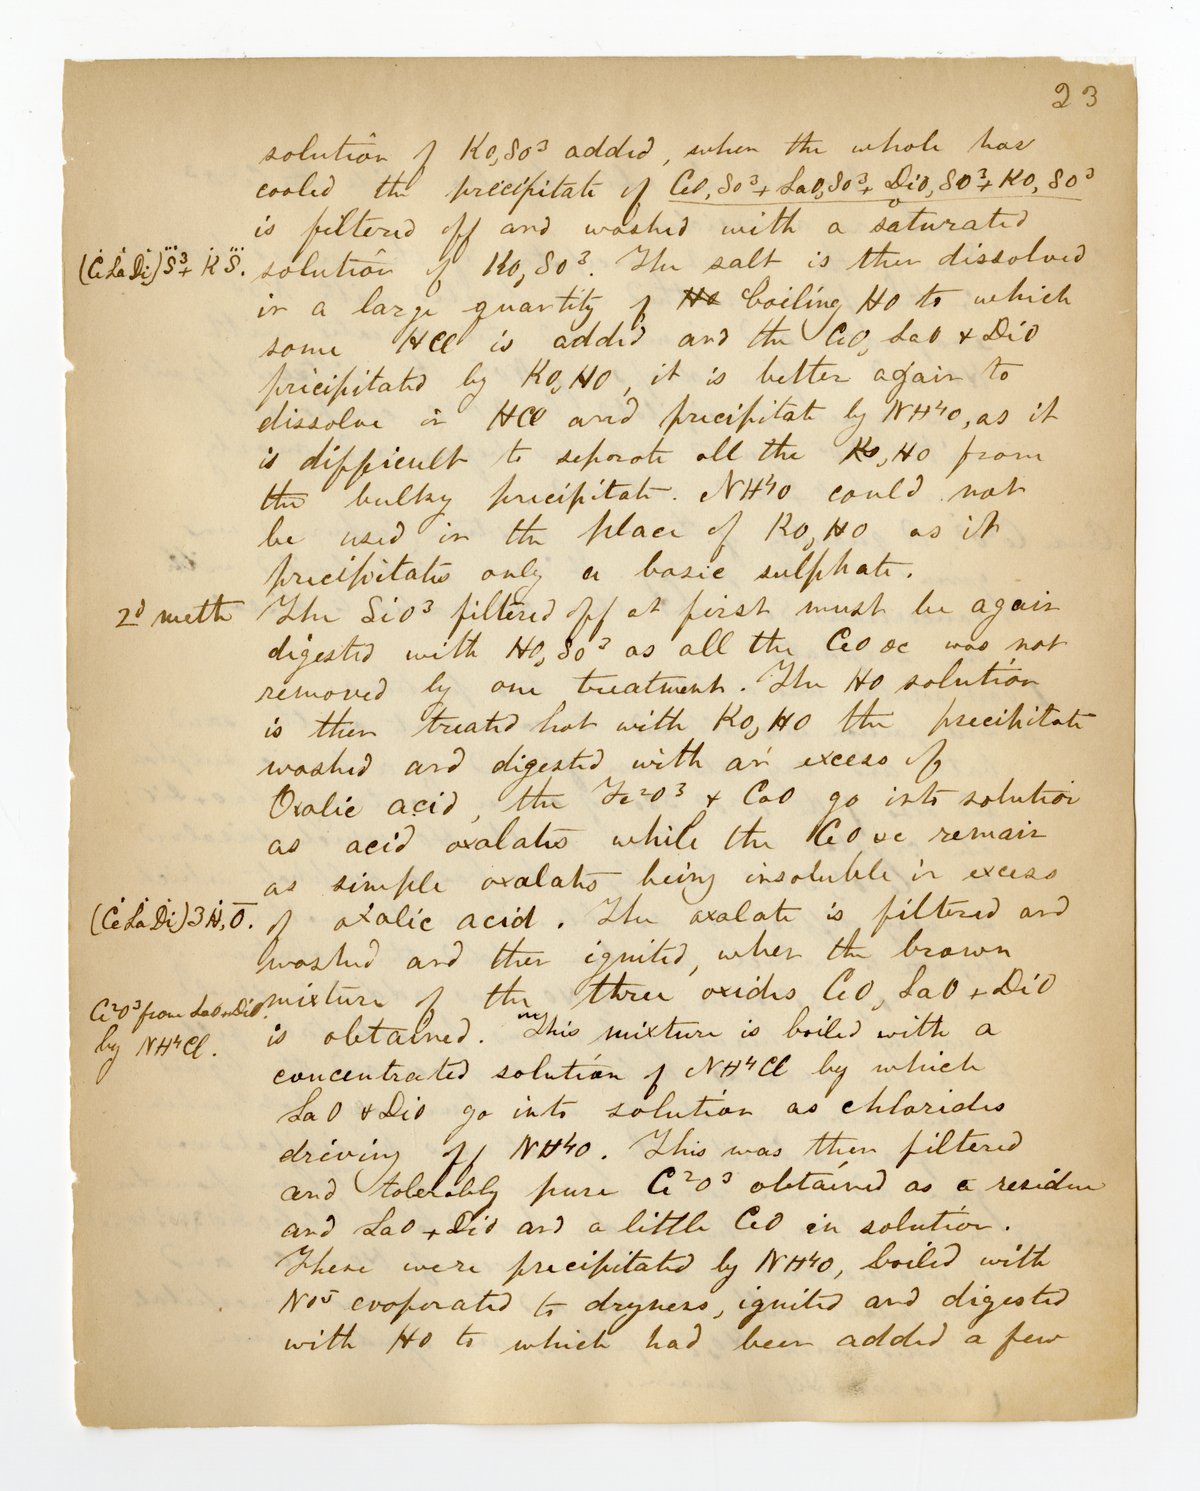 23
solution of KO,SO³ added, when the whole has
cooled the precipitate of CeO,SO³+LaO,SO³+DiO,SO³+KO,SO³
is filtered off and washed with a saturated
(ĊeL̇aḊi)S⃛³+K̇S⃛.
solution of KO,SO³. The salt is then dissolved
in a large quantity of HO boiling HO to which
some HCl is added and the CeO, LaO + DiO
pricipitated by KO,HO, it is better again to
dissolve in HCl and precipitate by NH⁴O, as it
is difficult to seperate all the KO,HO from
the bulky precipitate. NH⁴O could not
be used in the place of KO,HO as it
precipitates only a basic sulphate.
2d meth
The SiO³ filtered off at first must be again
digested with HO,SO³ as all the CeO &c was not
removed by one treatment. The HO solution
is then treated hot with KO,HO the precipitate
washed and digested with an excess of
Oxalic acid, the Fe²O³ + CaO go into solution
as acid oxalates while the CeO &c remain
as simple oxalates being insoluble in excess
(ĊeL̇aḊi)3Ḣ,Ō.
of oxalic acid. The oxalate is filtered and
washed and then ignited, when the brown
Ce²O³ from LaO+DiO.
by NH⁴Cl.
mixture of the three oxides CeO, LaO + DiO
is obtained. This mixture is boiled with a
concentrated solution of NH⁴Cl by which
LaO + DiO go into solution as chlorides
driving off NH⁴O. This was then filtered
and tolerably pure Ce²O³ obtained as a residue
and LaO + DiO and a little CeO in solution.
These were precipitated by NH⁴O, boiled with
NO⁵ evaporated to dryness, ignited and digested
with HO to which had been added a few